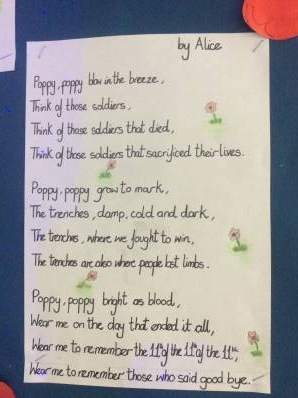 by Alice
Poppy, poppy blow in the breeze,
Think of those soldiers,
Think of those soldiers that died,
Think of those soldiers that sacrificed their lives.
Poppy, poppy grow to mark,
The trenches, damp, cold and dark,
The trenches, where we fought to win,
The trenches are also where people lost limbs.
Poppy, poppy bright as blood,
Wear me on the day that ended it all,
Wear me to remember the 11th of the 11th of the 11th,
Wear me to remember those who said good bye.